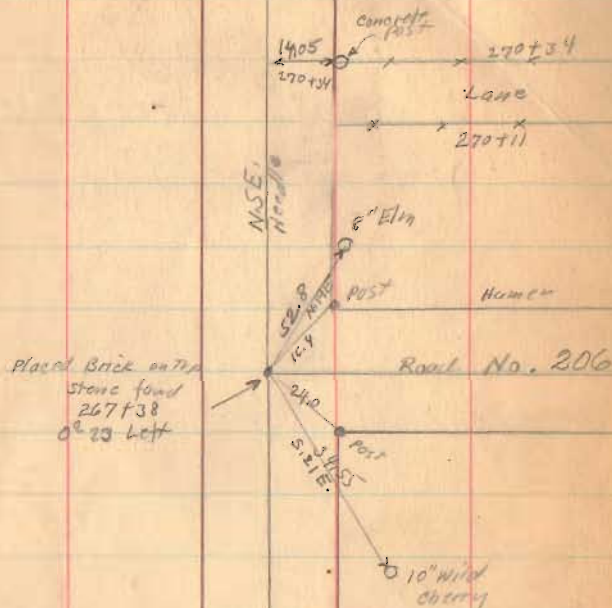 Concrete
Post
14.05
270+34
270+34
Lane
270+11
N.5E.
Needle
8" Elm
52.8
N.19E
Post
16.4
Road No. 206
Placed Brick on Top
stone found
267+38
0° 23 Left
24.0
Post
34.55
S.21E.
10" Wild
Cherry